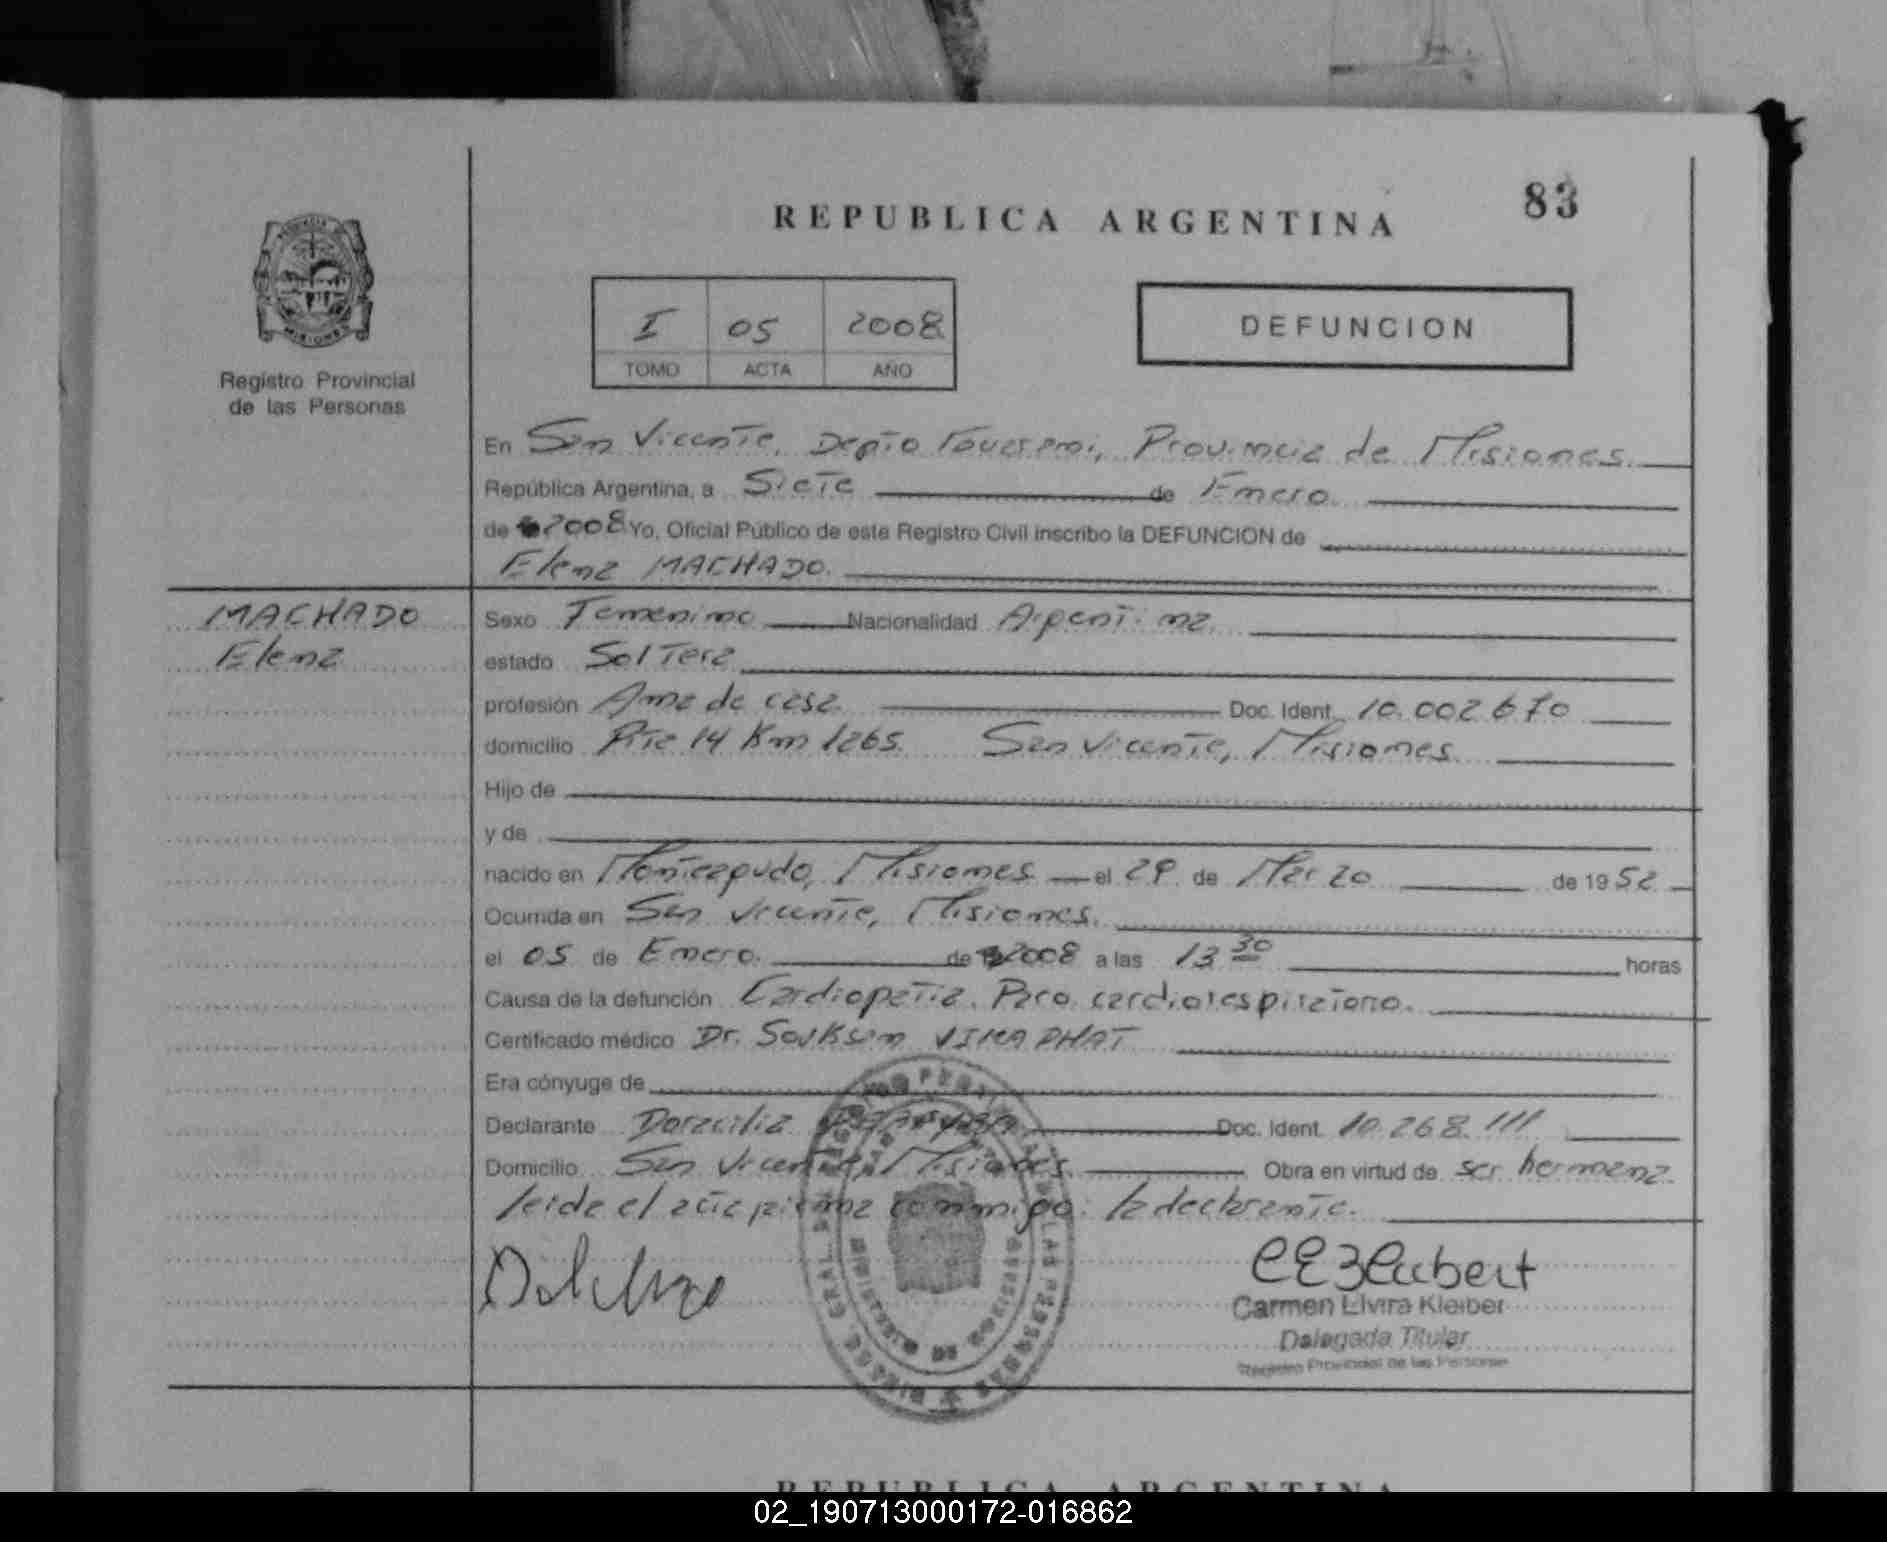 83
REPUBLICA ARGENTINA
PROVINCIA DE
MISIONES
Registro Provincial
de las Personas
I 05 2008
TOMO ACTA AÑO
DEFUNCION
En San Vicente, Depto Guarani, Provincia de Misiones
República Argentina, a Siete de Enero
de 2008 Yo, Oficial Público de este Registro Civil inscribo la DEFUNCION de
Elena MACHADO.
MACHADO
Elena
Sexo Femenino Nacionalidad Argentina
estado Soltera
profesión Ama de casa Doc. Ident. 10.002.670
domicilio Rta 14 Km 1265. San Vicente, Misiones
Hijo de
y de
nacido en Montecagudo, Misiones el 29 de Marzo de 1952
Ocurrida en San Vicente, Misiones.
el 05 de Enero. de 2008 a las 13 30 horas
Causa de la defunción Cardiopatia. Paro cardiorespiratorio.
Certificado médico Dr. Souksun VIKAPHAT
Era cónyuge de
Declarante Doracilia Doc. Ident. 10.268.111
Domicilio San Vicente, Misiones. Obra en virtud de ser hermana.
leida el acta firma conmigo: la declarante.
Carmen Elvira Kleiber
Delegada Titular
Registro Provincial de las Personas
REPUBLICA ARGENTINA
02_190713000172-016862